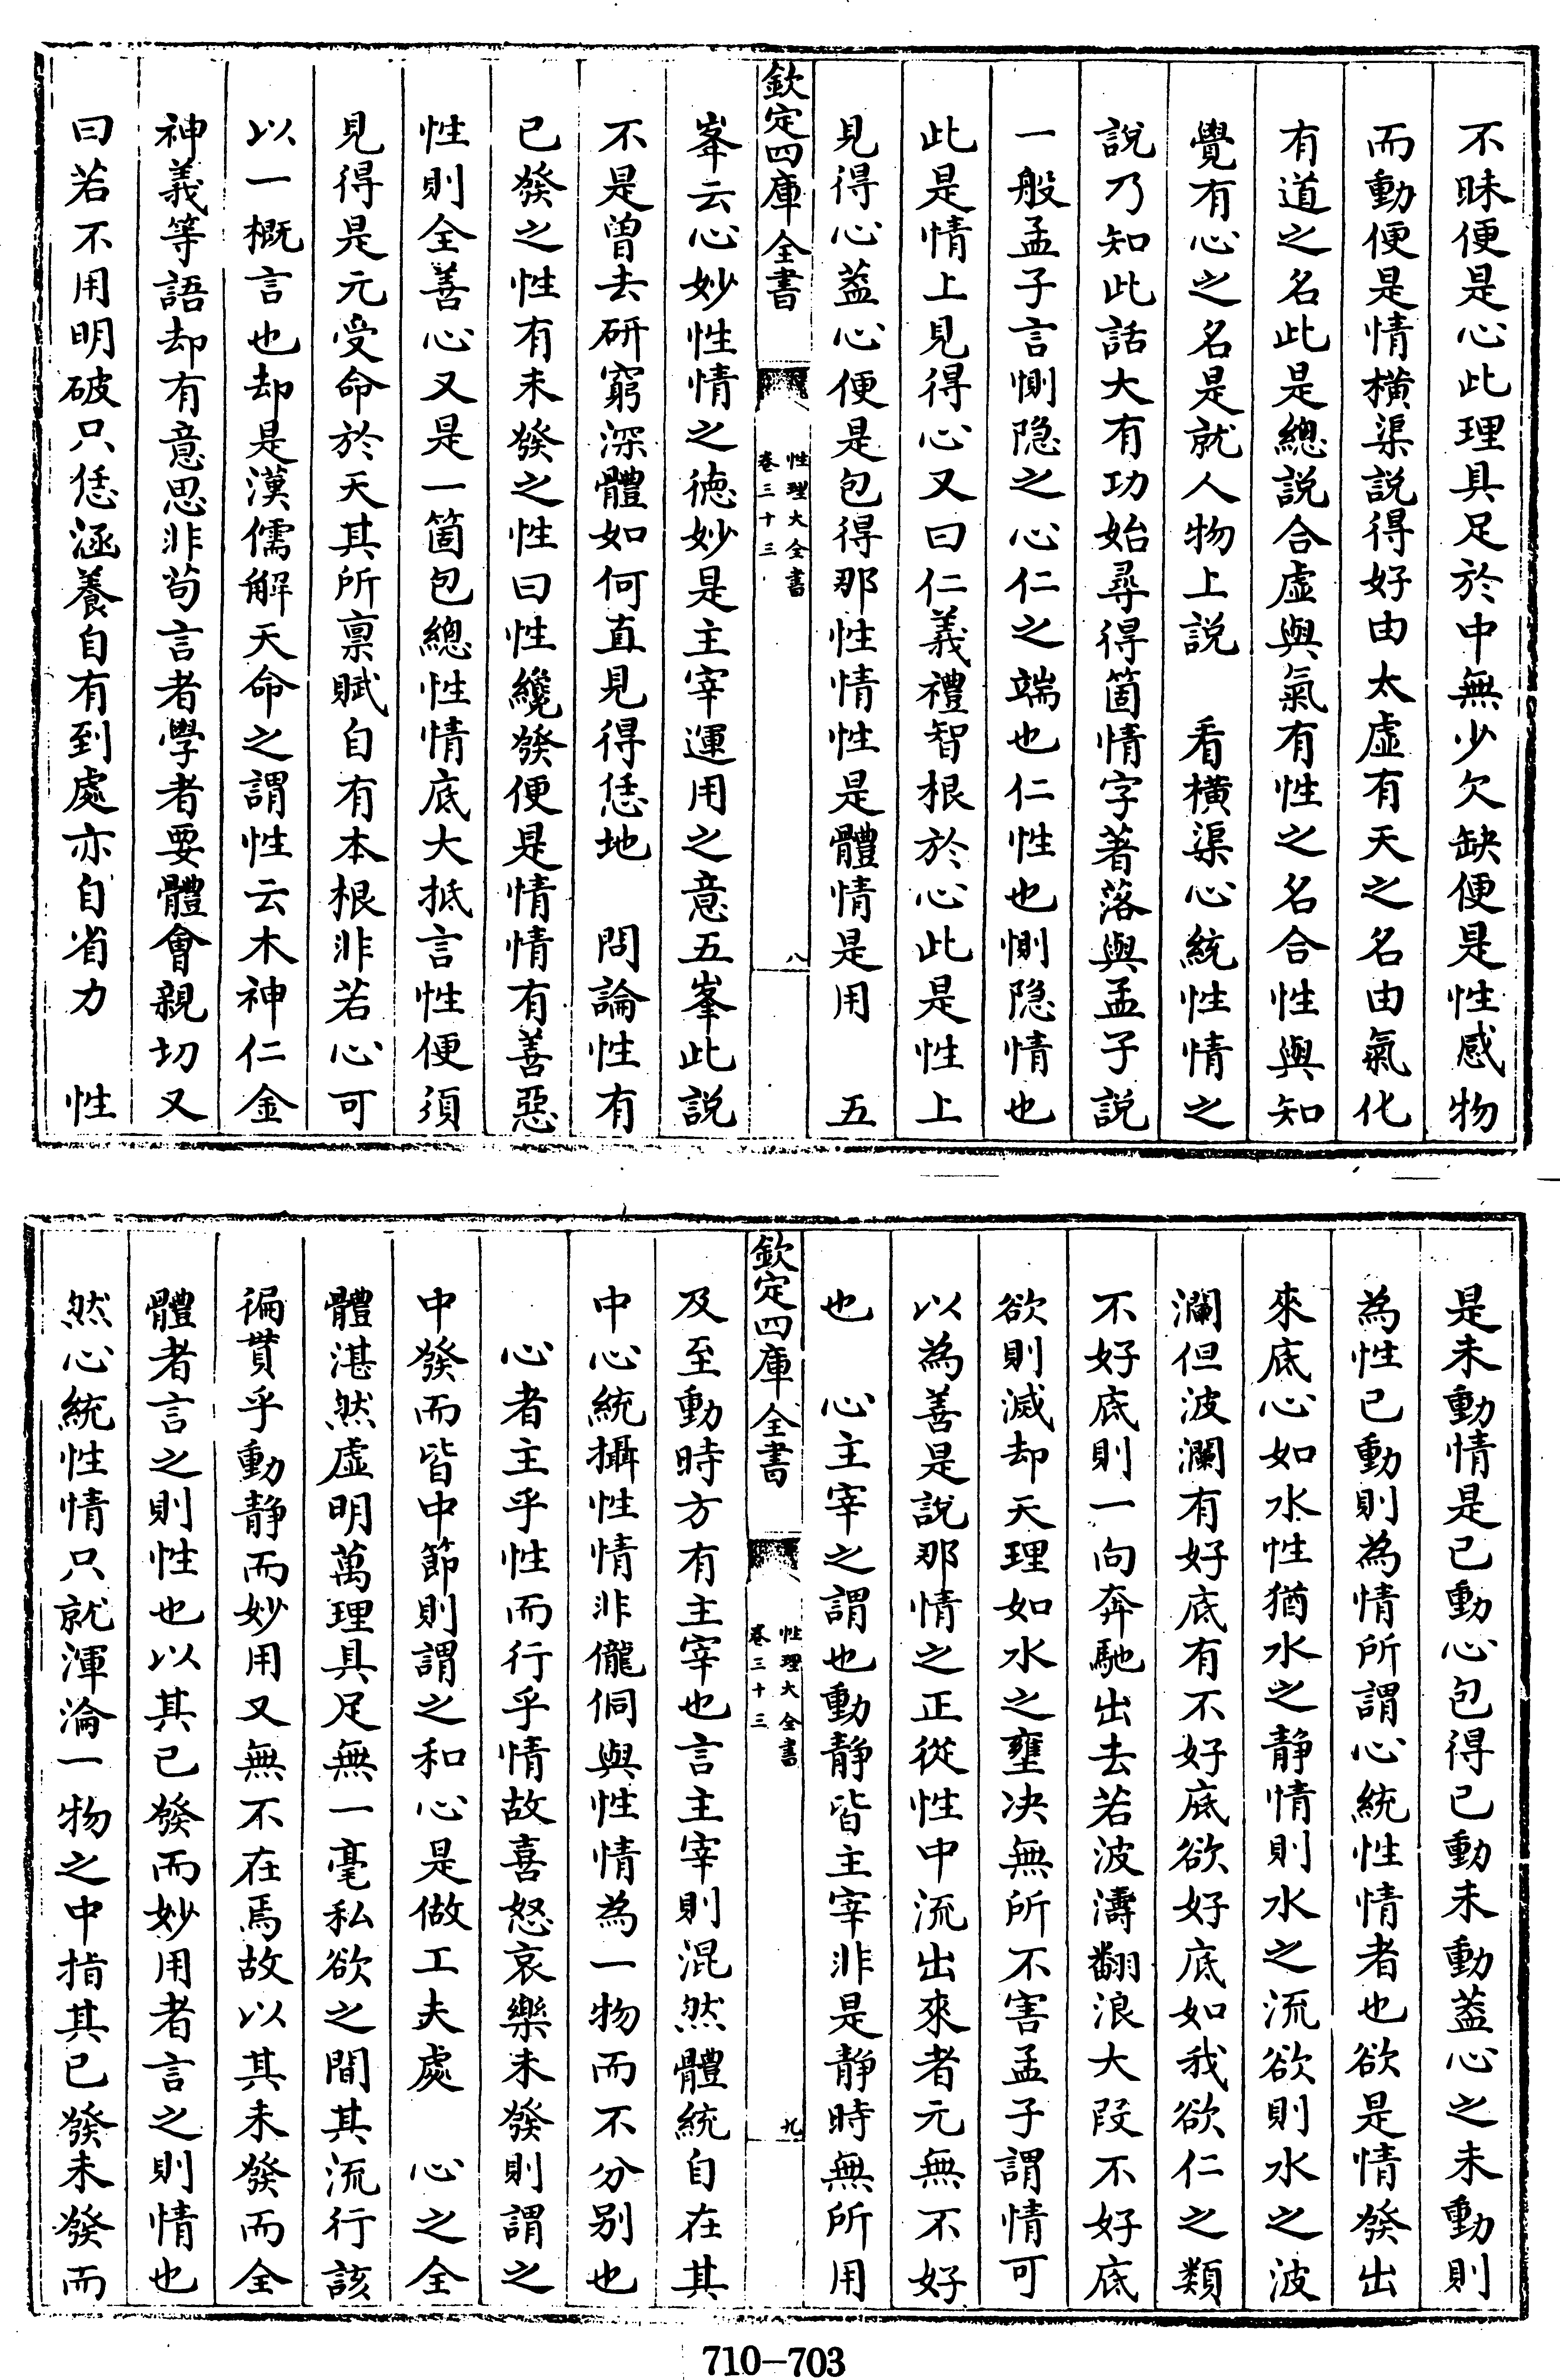 不昧便是心此理具足於中無少欠缺便是性感物
而動便是情橫渠説得好由太虚有天之名由氣化
有道之名此是總説合虚與氣有性之名合性與知
覺有心之名是就人物上説　看橫渠心統性情之
說乃知此話大有功始尋得箇情字著落與孟子説
一般孟子言惻隐之心仁之端也仁性也惻隐情也
此是情上見得心又曰仁義禮智根於心此是性上
見得心葢心便是包得那性情性是體情是用　五
欽定四庫全書
性理大全書
卷三十三
八
峯云心妙性情之德妙是主宰運用之意五峯此説
不是曾去研窮深體如何直見得恁地　問論性有
已發之性有未發之性曰性纔發便是情情有善惡
性則全善心又是一箇包總性情底大抵言性便須
見得是元受命於天其所禀賦自有本根非若心可
以一概言也却是漢儒解天命之謂性云木神仁金
神義等語却有意思非苟言者學者要體會親切又
曰若不用明破只恁涵養自有到處亦自省力　性
是未動情是已動心包得已動未動葢心之未動則
為性已動則為情所謂心統性情者也欲是情發出
來底心如水性猶水之静情則水之流欲則水之波
瀾但波瀾有好底有不好底欲好底如我欲仁之類
不好底則一向奔馳出去若波濤翻浪大段不好底
欲則滅却天理如水之壅决無所不害孟子謂情可
以為善是說那情之正從性中流出來者元無不好
也　心主宰之謂也動静皆主宰非是静時無所用
欽定四庫全書
性理大全書
卷三十三
九
及至動時方有主宰也言主宰則混然體統自在其
中心統攝性情非儱侗與性情為一物而不分别也
心者主乎性而行乎情故喜怒哀樂未發則謂之
中發而皆中節則謂之和心是做工夫處　心之全
體湛然虚明萬理具足無一毫私欲之間其流行該
徧貫乎動静而妙用又無不在焉故以其未發而全
體者言之則性也以其已發而妙用者言之則情也
然心統性情只就渾淪一物之中指其已發未發而
710-703